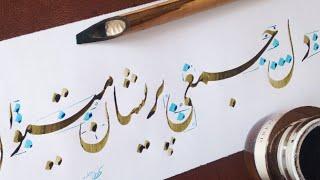 دل جمعی پریشان میشود